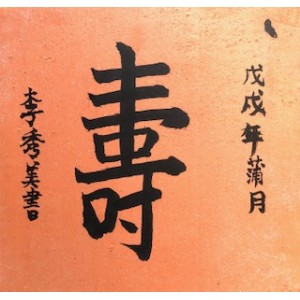 戊戌年蒲月
壽
李秀美書